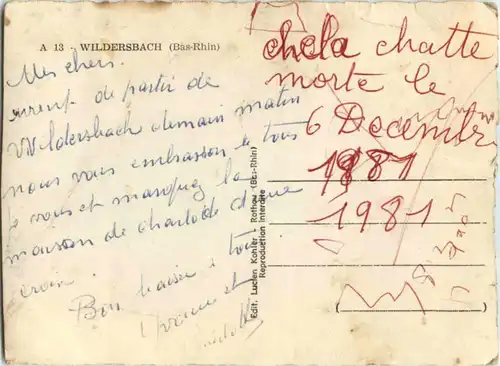 A 13 - WILDERSBACH (Bas-Rhin)
Mes chers.
de partir de
Wildersbach demain matin
nous vous embrasson le tous
je vous et marquez la
maison de d'une
croix.
Bon baiser à tous
Yvonne et
chela chatte
morte le
6 Decembr
1981
1981
Edit. Lucien Kohler - Rothau (Bas-Rhin)
Reproduction Interdite